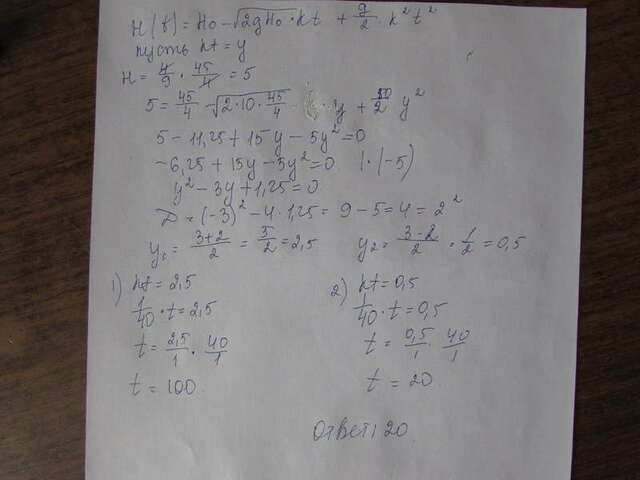 H(t) = H₀ - √(2gH₀) · kt + g/2 k² t²
пусть kt = y
H = 4/9 · 45/4 = 5
5 = 45/4 - √(2·10·45/4) · y + 10/2 y²
5 - 11,25 + 15y - 5y² = 0
-6,25 + 15y - 5y² = 0 | · (-5)
y² - 3y + 1,25 = 0
D = (-3)² - 4·1,25 = 9 - 5 = 4 = 2²
y₁ = (3+2)/2 = 5/2 = 2,5 y₂ = (3-2)/2 = 1/2 = 0,5
1) kt = 2,5 2) kt = 0,5
1/40 · t = 2,5 1/40 · t = 0,5
t = 2,5/1 · 40/1 t = 0,5/1 · 40/1
t = 100 t = 20
Ответ: 20